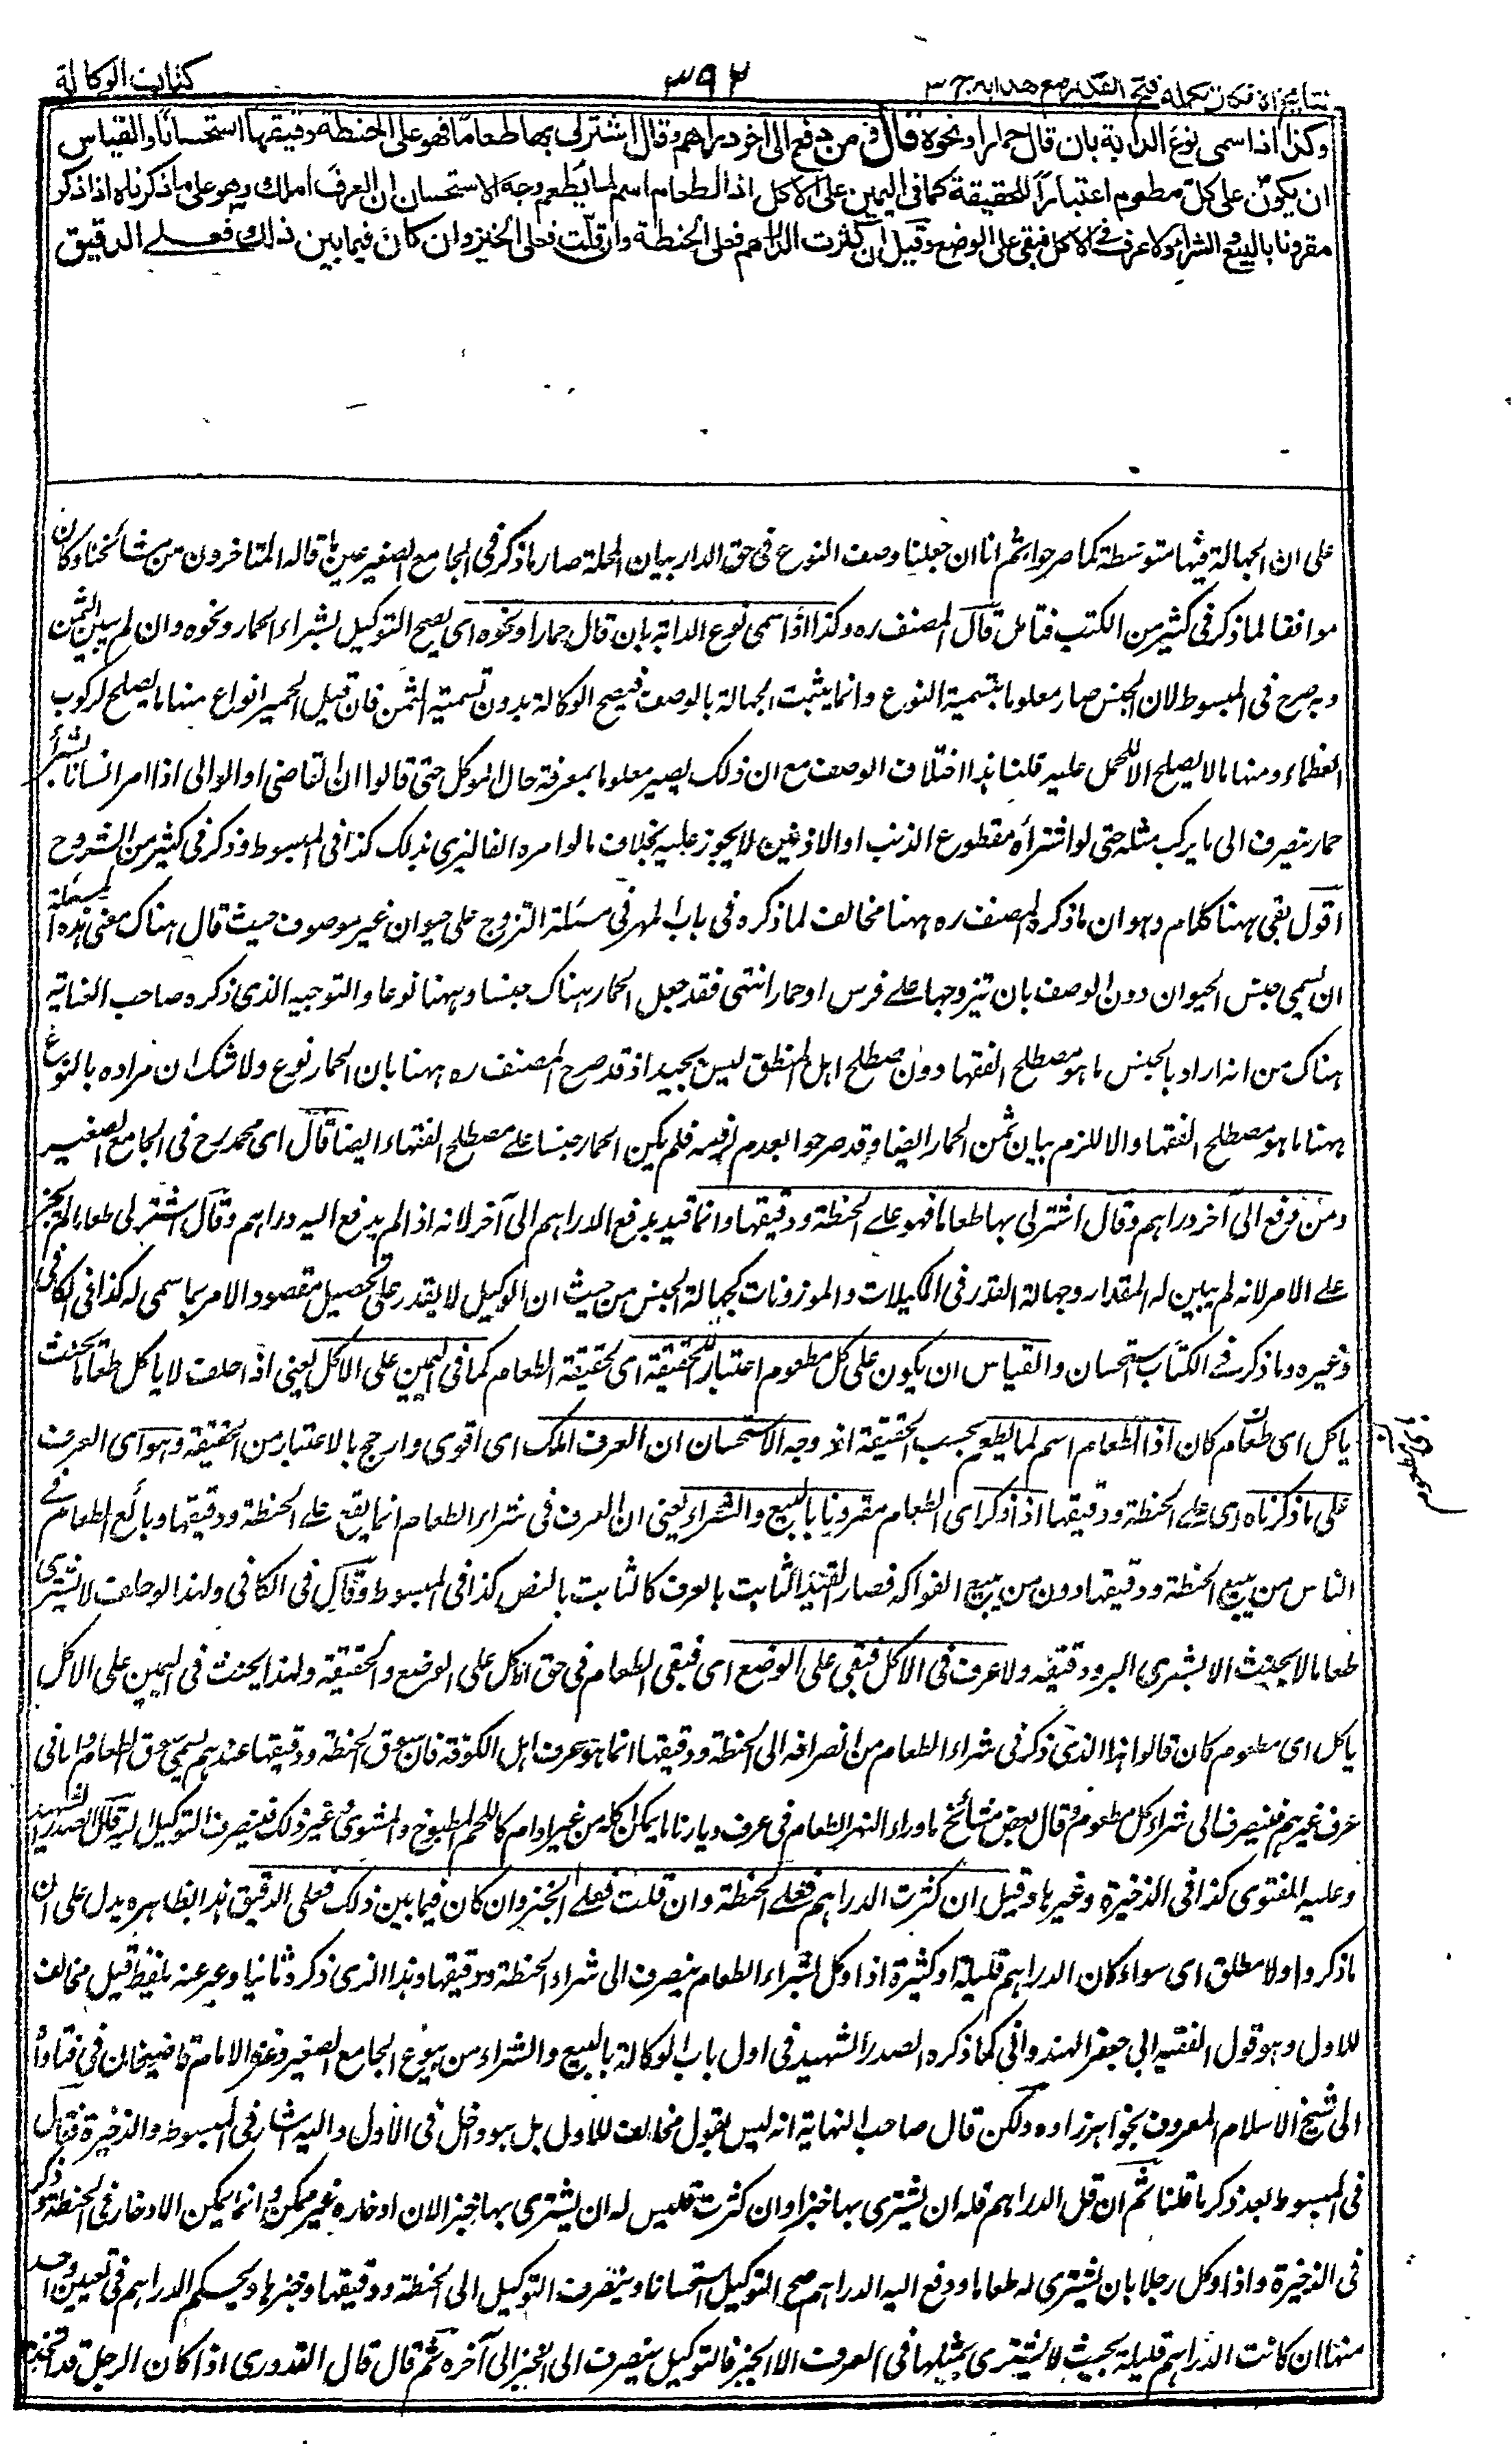 كتاب الوكالة
٣٩٢
نتائج الافكار تكملة فتح القدير مع هدايه ج ٣
وكذا اذا سمى نوع الدابة بان قال حمارا ونحوه قال ومن دفع الى اخر دراهم وقال اشتر لى بها طعاما فهو على الحنطة ودقيقها استحسانا والقياس
ان يكون على كل مطعوم اعتبارا للحقيقة كما فى اليمين على الاكل اذ الطعام اسم لما يطعم وجه الاستحسان ان العرف املك وهو على ما ذكرناه اذا ذكر
مقرونا بالبيع والشراء ولا عرف فى الاكل فبقى على الوضع وقيل ان كثرت الدراهم فعلى الحنطة وان قلت فعلى الخبز وان كان فيما بين ذلك فعلى الدقيق
على ان الجهالة فيها متوسطة كما صرحوا به ثم انا ان جعلنا وصف النوع فى حق الدار بيان المحلة صار ما ذكر فى الجامع الصغير عين ما قاله المتاخرون من مشائخنا وكان
موافقا لما ذكر فى كثير من الكتب فتامل قال المصنف ره وكذا اذا سمى نوع الدابة بان قال حمارا ونحوه اى يصح التوكيل بشراء الحمار ونحوه وان لم يبين الثمن
وبه صرح فى المبسوط لان الجنس صار معلوما بتسمية النوع وانما يثبت الجهالة بالوصف فيصح الوكالة بدون تسمية الثمن فان قيل الحمير انواع منها ما يصلح لركوب
العظماء ومنها ما لا يصلح الا للحمل عليه قلنا هذا اختلاف الوصف مع ان ذلك يصير معلوما بمعرفة حال الموكل حتى قالوا ان القاضى او الوالى اذا امر انسانا بشراء
حمار ينصرف الى ما يركب مثله حتى لو اشتراه مقطوع الذنب او الاذنين لا يجوز عليه بخلاف ما لو امره الفاليزى بذلك كذا فى المبسوط وذكر فى كثير من الشروح
اقول بقى ههنا كلام وهو ان ما ذكره المصنف ره ههنا مخالف لما ذكره فى باب المهر فى مسئلة التزوج على حيوان غير موصوف حيث قال هناك معنى هذه المسئلة
ان يسمى جنس الحيوان دون الوصف بان تزوجها على فرس او حمار انتهى فقد جعل الحمار هناك جنسا وههنا نوعا والتوجيه الذى ذكره صاحب العناية
هناك من انه اراد بالجنس ما هو مصطلح الفقها دون مصطلح اهل المنطق ليس بجيد اذ قد صرح المصنف ره ههنا بان الحمار نوع ولا شك ان مراده بالنوع
ههنا ما هو مصطلح الفقها والا للزم بيان ثمن الحمار ايضا وقد صرحوا بعدم لزومه فلم يكن الحمار جنسا على مصطلح الفقهاء ايضا قال اى محمد رح فى الجامع الصغير
ومن دفع الى آخر دراهم وقال اشتر لى بها طعاما فهو على الحنطة ودقيقها وانما قيد بدفع الدراهم الى آخر لانه اذا لم يدفع اليه دراهم وقال اشتر لى طعاما لم يجز
على الامر لانه لم يبين له المقدار وجهالة القدر فى المكيلات والموزونات كجهالة الجنس من حيث ان الوكيل لا يقدر على تحصيل مقصود الامر بما سمى له كذا فى الكافى
وغيره وما ذكر فى الكتاب استحسان والقياس ان يكون على كل مطعوم اعتبارا للحقيقة اى لحقيقة الطعام كما فى اليمين على الاكل يعنى اذا حلف لا ياكل طعاما يحنث
ياكل اى طعام كان اذ الطعام اسم لما يطعم بحسب الحقيقة وجه الاستحسان ان العرف املك اى اقوى وارجح بالاعتبار من الحقيقة وهو اى العرف
على ما ذكرناه اى على الحنطة ودقيقها اذا ذكر اى الطعام مقرونا بالبيع والشراء يعنى ان العرف فى شراء الطعام انما يقع على الحنطة ودقيقها وبائع الطعام فى
الناس من يبيع الحنطة ودقيقها دون من يبيع الفواكه فصار التقييد الثابت بالعرف كالثابت بالنص كذا فى المبسوط وقال فى الكافى ولهذا لو حلف لا يشترى
طعاما لا يحنث الا بشرى البر ودقيقه ولا عرف فى الاكل فبقى على الوضع اى فبقى الطعام فى حق الاكل على الوضع والحقيقة ولهذا يحنث فى اليمين على الاكل
ياكل اى مطعوم كان قالوا هذا الذى ذكر فى شراء الطعام من انصرافه الى الحنطة ودقيقها انما هو عرف اهل الكوفة فان سوق الحنطة ودقيقها عندهم يسمى سوق الطعام واما فى
عرف غيرهم فينصرف الى شراء كل مطعوم وقال بعض مشائخ ما وراء النهر الطعام فى عرف ديارنا ما يمكن اكله من غير ادام كاللحم المطبوخ والمشوى وغير ذلك فينصرف التوكيل اليه قال الصدر الشهيد
وعليه الفتوى كذا فى الذخيرة وغيرها وقيل ان كثرت الدراهم فعلى الحنطة وان قلت فعلى الخبز وان كان فيما بين ذلك فعلى الدقيق هذا بظاهره يدل على ان
ما ذكروا ولا مطلق اى سواء كان الدراهم قليلة او كثيرة اذا وكل بشراء الطعام ينصرف الى شراء الحنطة ودقيقها وهذا الذى ذكره ثانيا وعبر عنه بلفظ قيل مخالف
للاول وهو قول الفقيه ابى جعفر الهندوانى كما ذكره الصدر الشهيد فى اول باب الوكالة بالبيع والشراء من بيوع الجامع الصغير وعزاه الامام قاضيخان فى فتاواه
الى شيخ الاسلام المعروف بخواهرزاده ولكن قال صاحب النهاية انه ليس بقول مخالف للاول بل هو داخل فى الاول واليه اشار فى المبسوط والذخيرة فقال
فى المبسوط بعد ذكر ما قلنا ثم ان قل الدراهم فله ان يشترى بها خبزا وان كثرت فليس له ان يشترى بها خبزا لان ادخاره غير ممكن وانما يمكن الادخار فى الحنطة وذكر
فى الذخيرة واذا وكل رجلا بان يشترى له طعاما ودفع اليه الدراهم صح التوكيل استحسانا وينصرف التوكيل الى الحنطة ودقيقها وخبزها ويحكم الدراهم فى تعيين واحد
منها ان كانت الدراهم قليلة بحيث لا يشترى بمثلها فى العرف الا الخبز فالتوكيل ينصرف الى الخبز الى آخره ثم قال قال القدورى اذا كان الرجل قد اتخذ